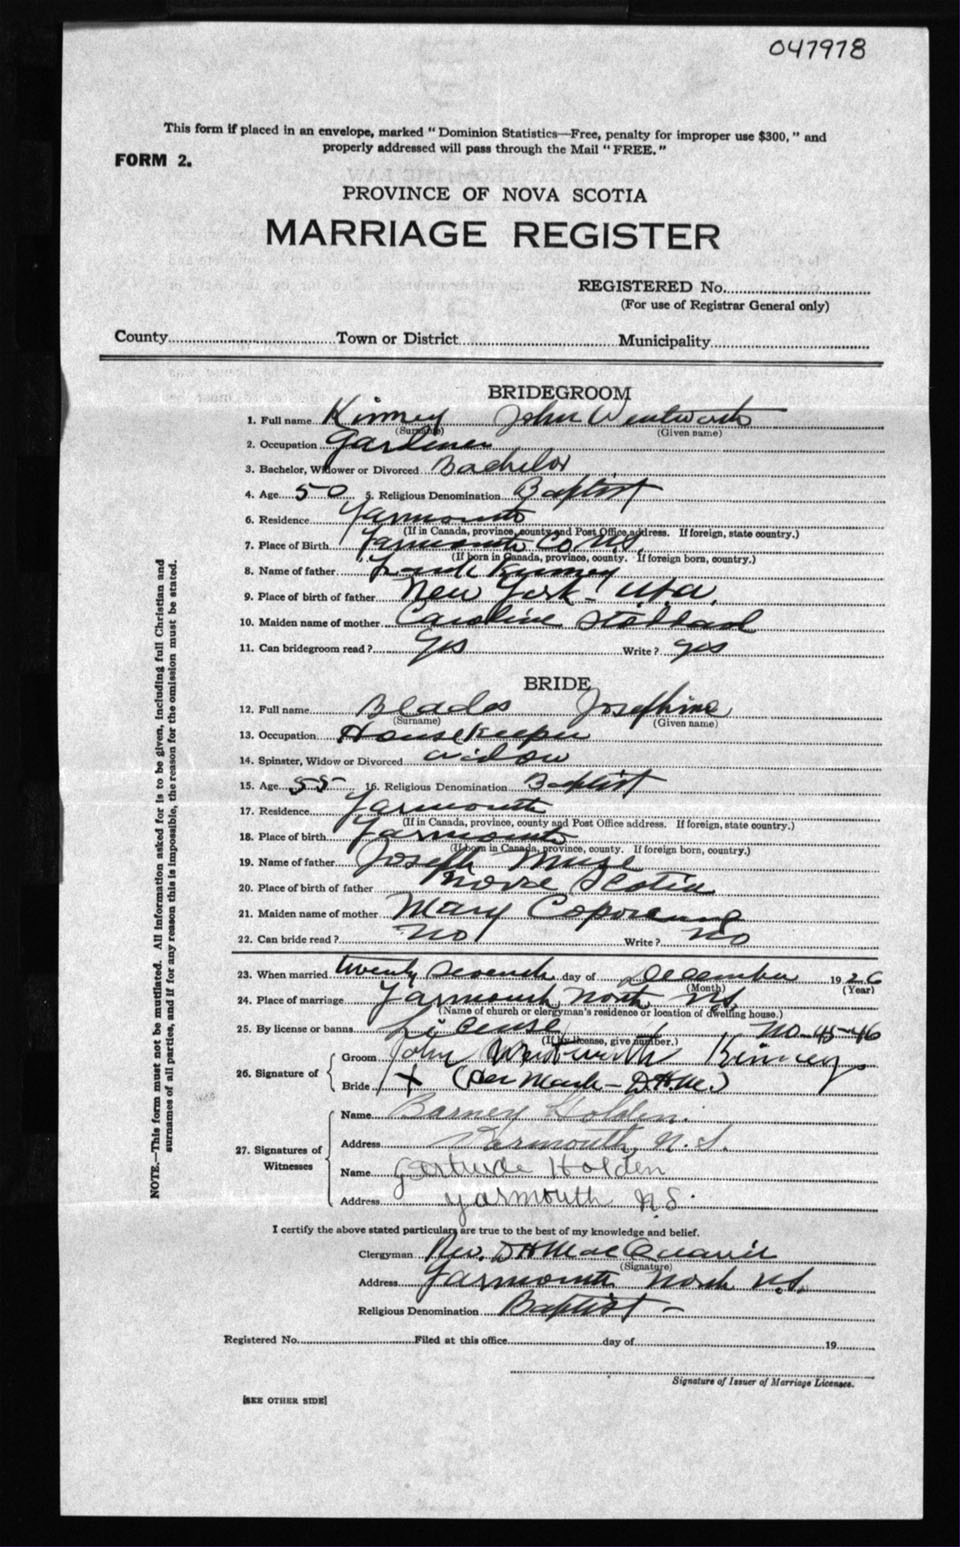 047978
This form if placed in an envelope, marked "Dominion Statistics—Free, penalty for improper use $300," and
properly addressed will pass through the Mail "FREE."
FORM 2.
PROVINCE OF NOVA SCOTIA
MARRIAGE REGISTER
REGISTERED No.
(For use of Registrar General only)
County Town or District Municipality
BRIDEGROOM
1. Full name Kinney John Wentworth
(Surname) (Given name)
2. Occupation Gardener
3. Bachelor, Widower or Divorced Bachelor
4. Age 50 5. Religious Denomination Baptist
6. Residence Yarmouth
(If in Canada, province, county and Post Office address. If foreign, state country.)
7. Place of Birth Yarmouth Co N.S.
(If born in Canada, province, county. If foreign born, country.)
8. Name of father Kinney
9. Place of birth of father New York U.S.A.
10. Maiden name of mother Caroline
11. Can bridegroom read? Yes Write? Yes
BRIDE
12. Full name Blades Josephine
(Surname) (Given name)
13. Occupation Housekeeper
14. Spinster, Widow or Divorced Widow
15. Age 55 16. Religious Denomination Baptist
17. Residence Yarmouth
(If in Canada, province, county and Post Office address. If foreign, state country.)
18. Place of birth Yarmouth
(If born in Canada, province, county. If foreign born, country.)
19. Name of father Joseph Muze
20. Place of birth of father Nova Scotia
21. Maiden name of mother Mary
22. Can bride read? No Write? No
23. When married twenty seventh day of December 1926
(Month) (Year)
24. Place of marriage Yarmouth North N.S.
(Name of church or clergyman's residence or location of dwelling house.)
25. By license or banns License No-45-46
(If by license, give number.)
26. Signature of Groom John Wentworth Kinney
Bride X (Her Mark - D.H.M.)
27. Signatures of Witnesses
Name Barney Holden
Address Yarmouth, N.S.
Name Gertrude Holden
Address Yarmouth N.S.
I certify the above stated particulars are true to the best of my knowledge and belief.
Clergyman Rev. D H MacQuarrie
(Signature)
Address Yarmouth North N.S.
Religious Denomination Baptist
Registered No. Filed at this office day of 19
Signature of Issuer of Marriage Licenses.
[SEE OTHER SIDE]
NOTE.—This form must not be mutilated. All information asked for is to be given, including full Christian and
surnames of all parties, and if for any reason this is impossible, the reason for the omission must be stated.